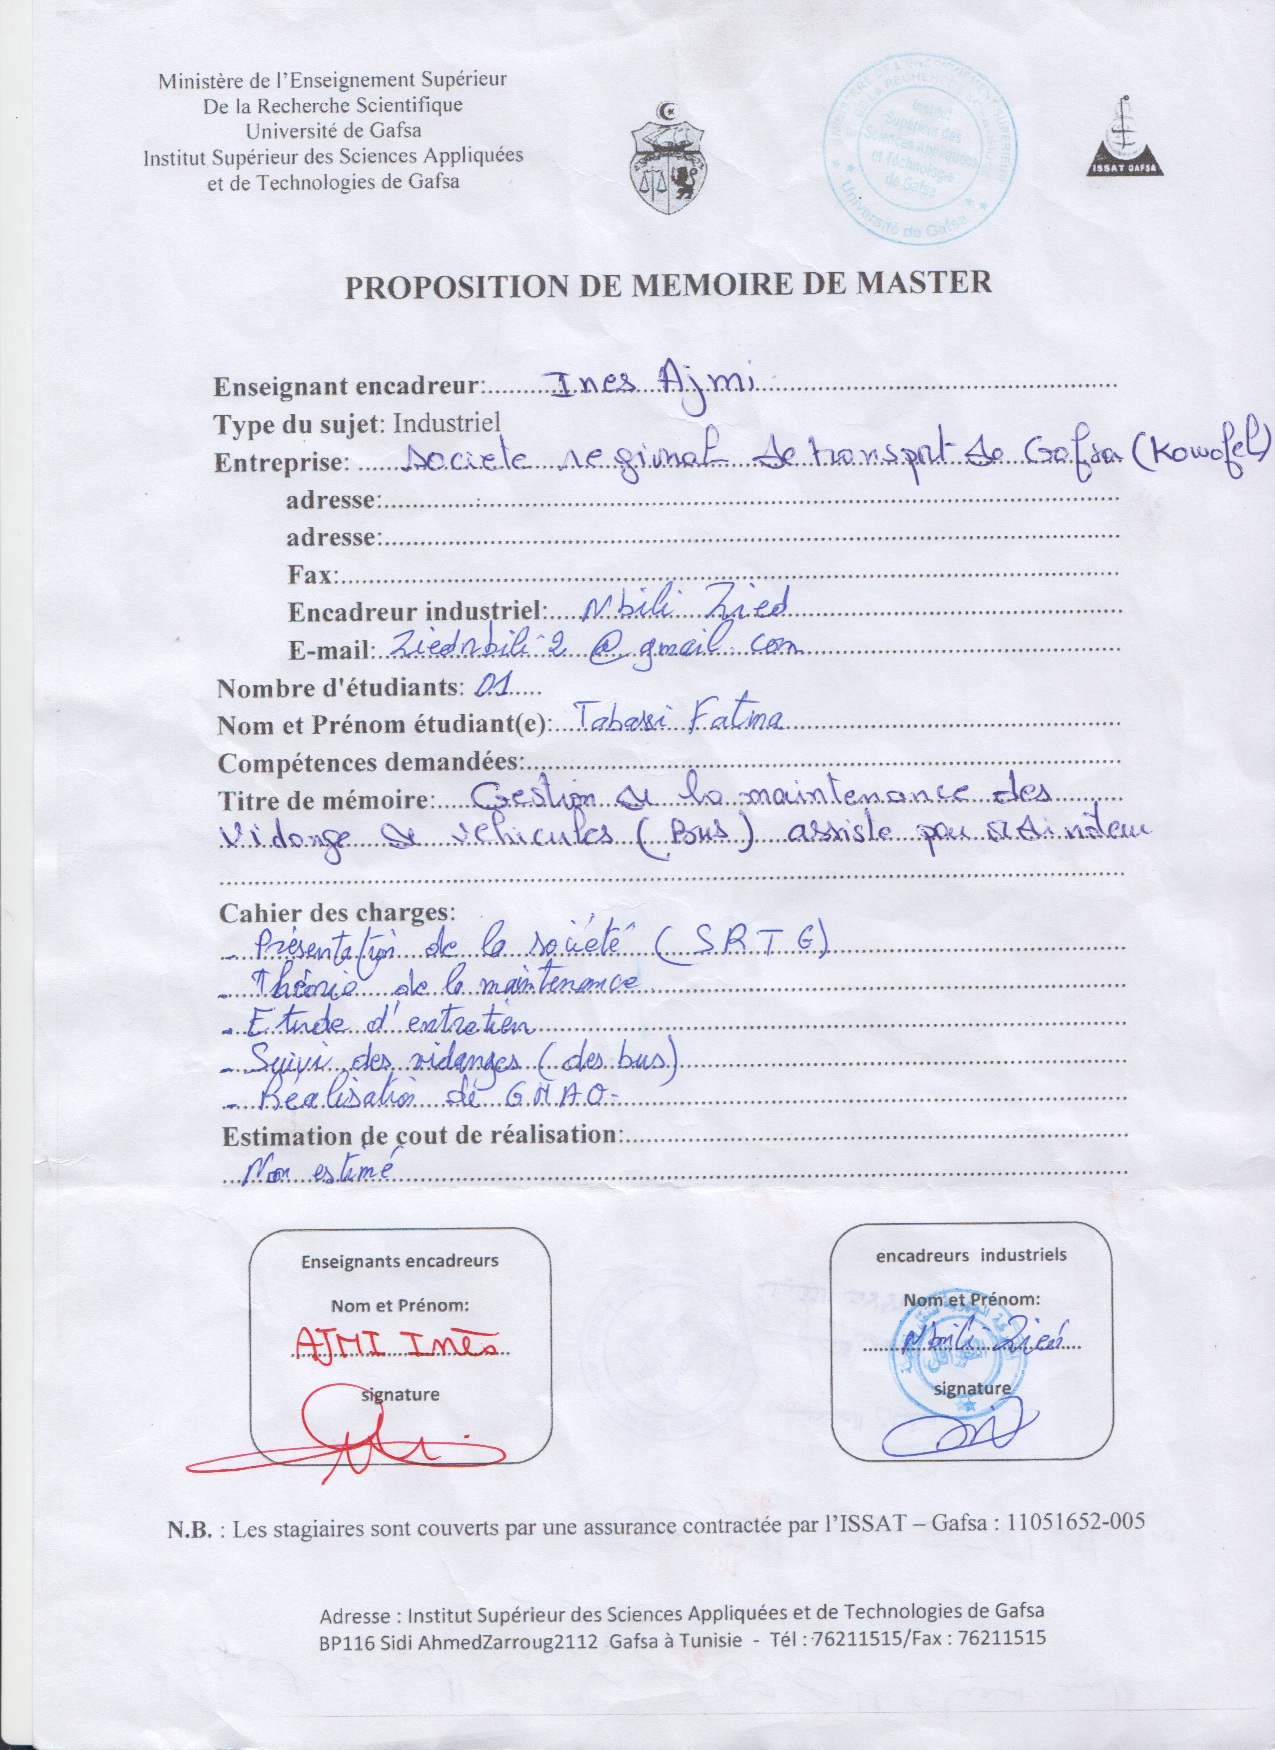 Ministère de l'Enseignement Supérieur
De la Recherche Scientifique
Université de Gafsa
Institut Supérieur des Sciences Appliquées
et de Technologies de Gafsa
Institut
Supérieur des
Sciences Appliquées
et Technologie
de Gafsa
Université de Gafsa
ISSAT GAFSA
PROPOSITION DE MEMOIRE DE MASTER
Enseignant encadreur: Ines Ajmi
Type du sujet: Industriel
Entreprise: societe regional de transport de Gafsa (Kowafel)
adresse:
adresse:
Fax:
Encadreur industriel: Nbili Zied
E-mail: Ziednbili2@gmail.com
Nombre d'étudiants: 01
Nom et Prénom étudiant(e): Tabassi Fatma
Compétences demandées:
Titre de mémoire: Gestion de la maintenance des
vidange de vehicules (Bus) assiste par
Cahier des charges:
- Présentation de la société (S.R.T.G)
- Théorie de la maintenance
- Etude d'entretien
- Suivi des vidanges (des bus)
- Réalisation de GMAO.
Estimation de cout de réalisation:
Non estimé
Enseignants encadreurs
Nom et Prénom:
AJMI Inès
signature
encadreurs industriels
Nom et Prénom:
Nbili Zied
signature
N.B. : Les stagiaires sont couverts par une assurance contractée par l'ISSAT – Gafsa : 11051652-005
Adresse : Institut Supérieur des Sciences Appliquées et de Technologies de Gafsa
BP116 Sidi AhmedZarroug2112 Gafsa à Tunisie - Tél : 76211515/Fax : 76211515